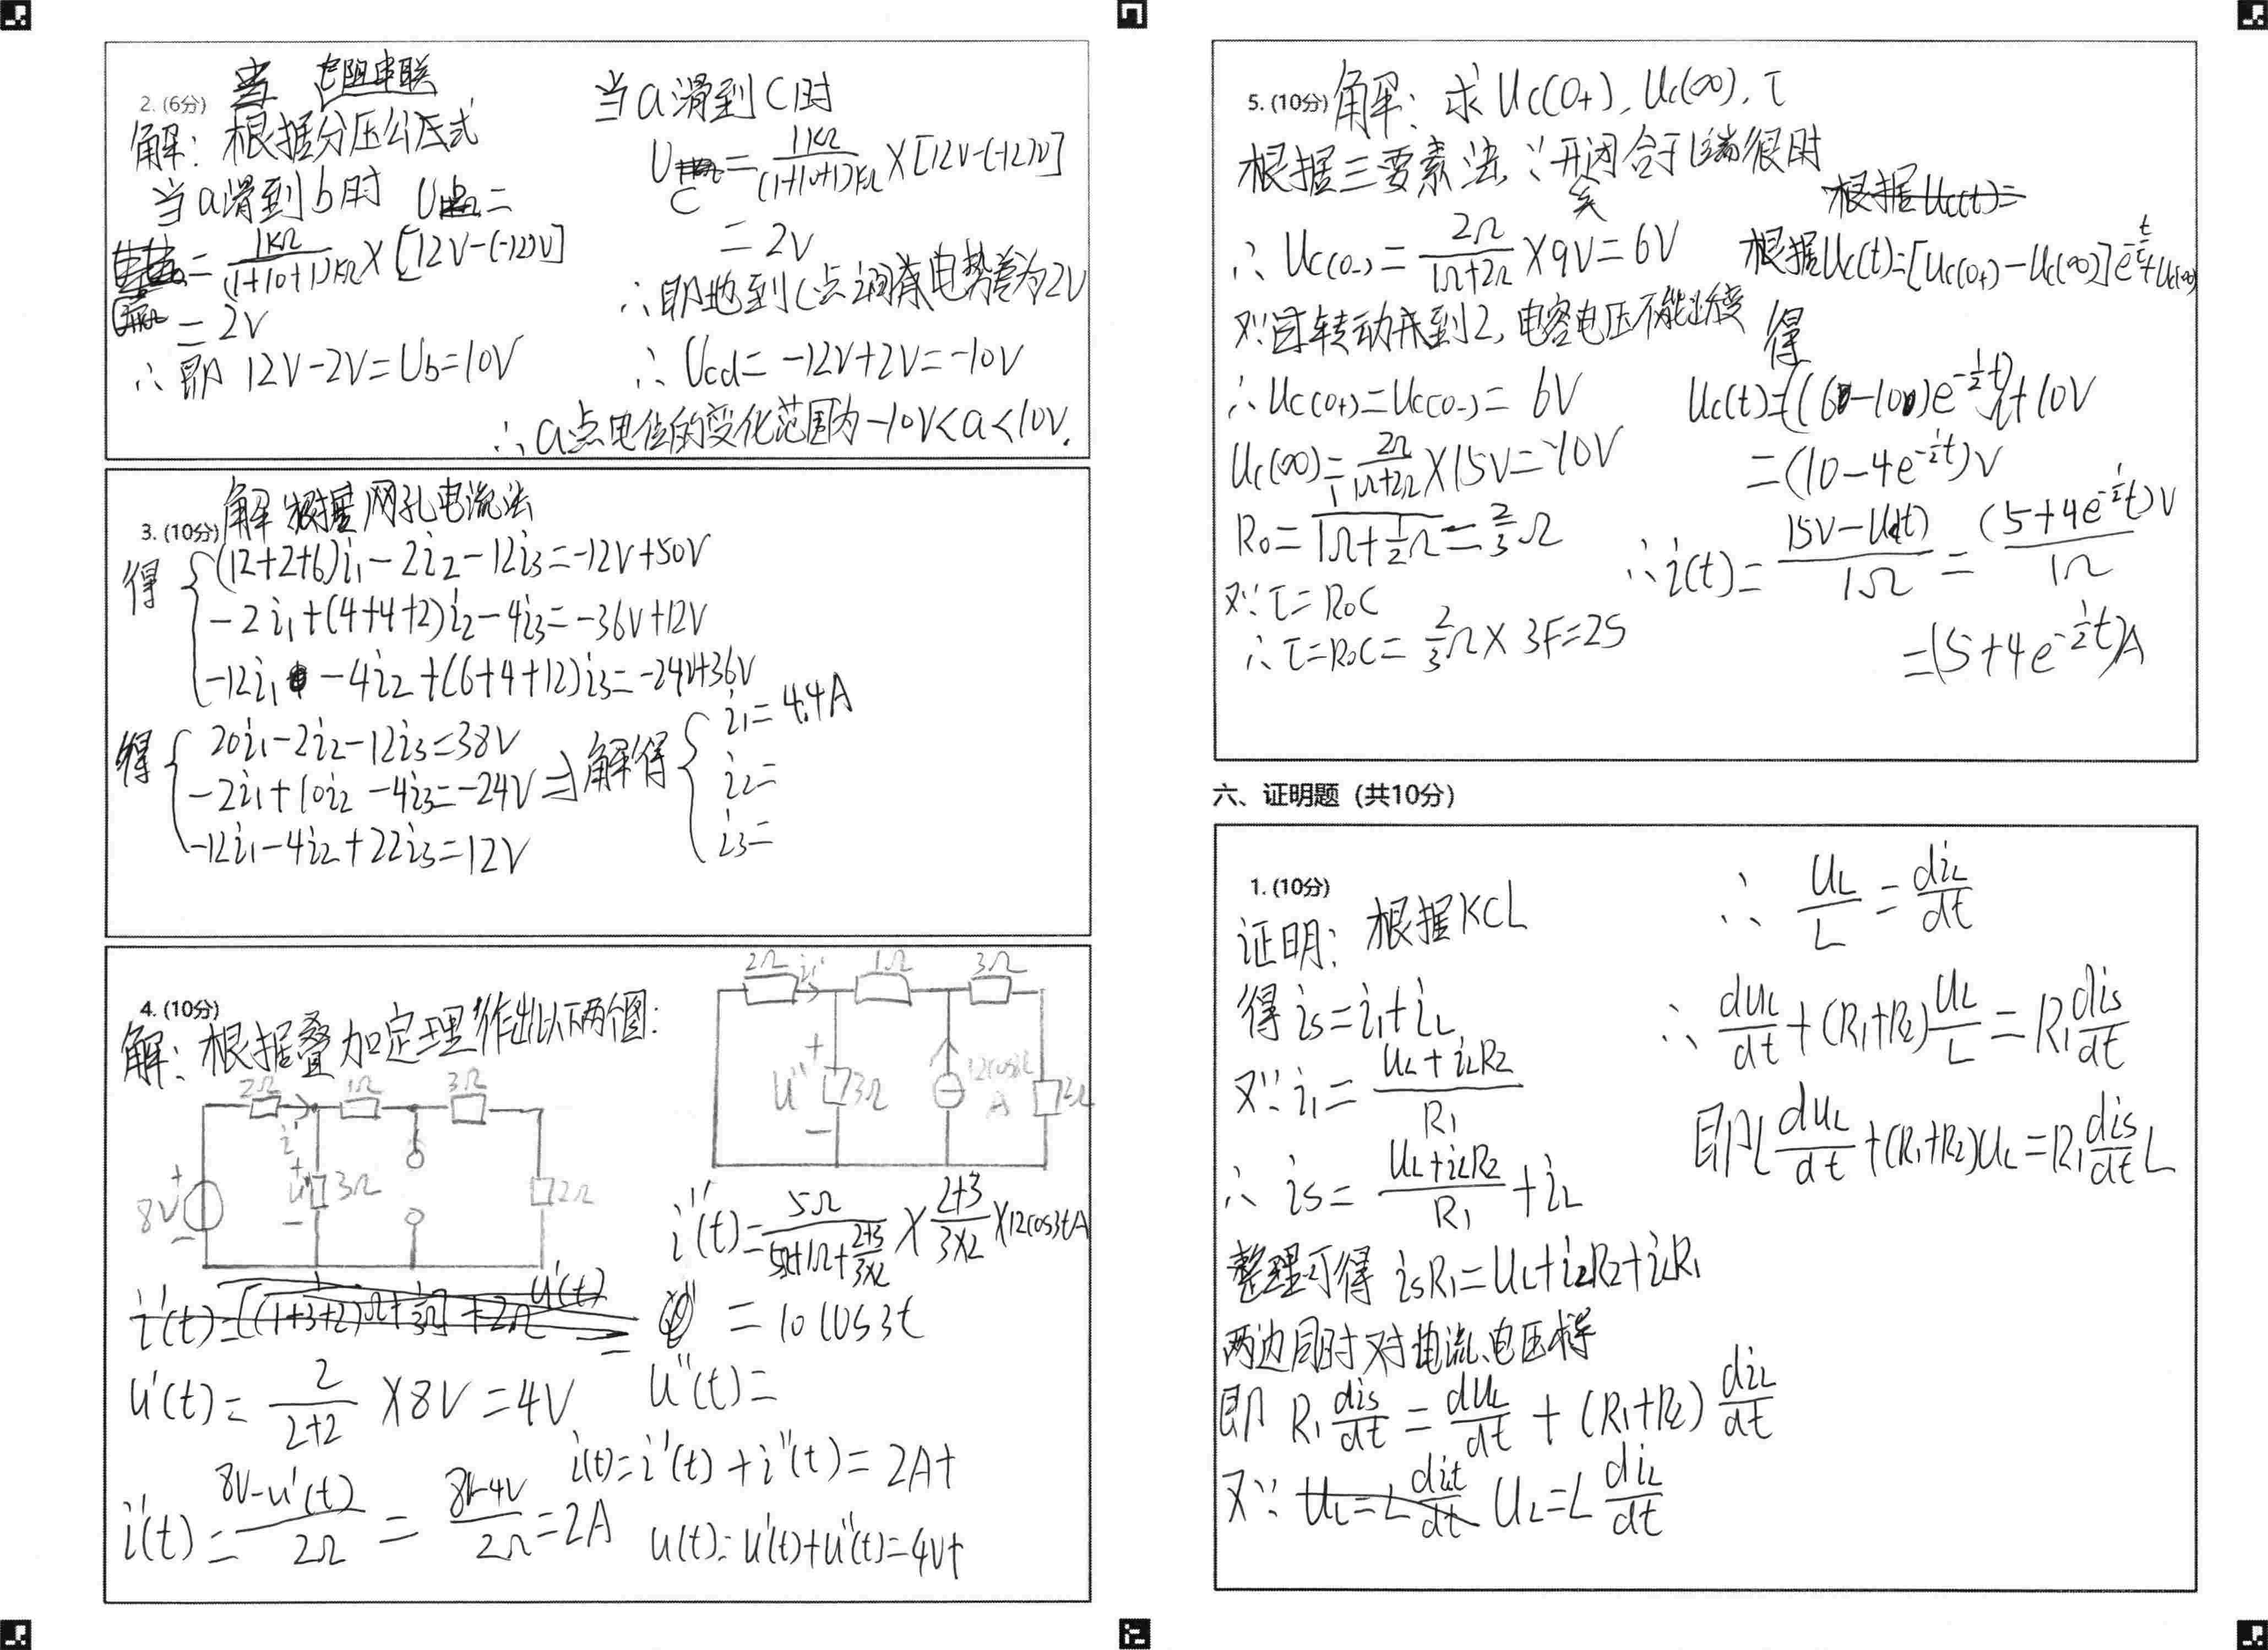 2. (6分)
电阻串联
解：根据分压公式
当a滑到b时 U =
= 1KΩ/(1+10+1)KΩ × [12V-(-12)V]
= 2V
∴ 即 12V-2V=Ub=10V
当a滑到C时
Uc = 1KΩ/(1+10+1)KΩ × [12V-(-12)V]
= 2V
∴ 即地到C点间有电势差为2V
∴ Ucd= -12V+2V=-10V
∴ a点电位的变化范围为 -10V<a<10V.
3. (10分) 解 根据网孔电流法
得 { (12+2+6)i₁-2i₂-12i₃=-12V+50V
-2i₁+(4+4+2)i₂-4i₃=-36V+12V
-12i₁-4i₂+(6+4+12)i₃=-24V+36V
得 { 20i₁-2i₂-12i₃=38V
-2i₁+10i₂-4i₃=-24V ⇒ 解得
-12i₁-4i₂+22i₃=12V
{ i₁=4.4A
i₂=
i₃=
4. (10分)
解：根据叠加定理作出以下两个图：
2Ω 1Ω 3Ω
i'
8V + - + u' - 3Ω 2Ω
2Ω i'' 1Ω 3Ω
+ u'' - 3Ω 12cos3t A 2Ω
u'(t)= 2/(2+2) ×8V=4V
i'(t)= (8V-u'(t))/2Ω = (8V-4V)/2Ω =2A
i''(t)= 5Ω/(5Ω+1Ω+(2+3)/(3×2)) × (2+3)/(3×2) ×12cos3tA
= 10cos3t
u''(t)=
i(t)=i'(t)+i''(t)=2A+
u(t)=u'(t)+u''(t)=4V+
5. (10分) 解：求 Uc(0₊), Uc(∞), τ
根据三要素法 ∵开关闭合于1端很时
∴ Uc(0₋)= 2Ω/(1Ω+2Ω) ×9V=6V
又∵ 转动开到2, 电容电压不能跃变
∴ Uc(0₊)=Uc(0₋)= 6V
Uc(∞)= 2Ω/(1Ω+2Ω) ×15V=10V
R₀= 1/(1Ω+1/2Ω) = 2/3 Ω
又∵ τ=R₀C
∴ τ=R₀C= 2/3 Ω× 3F=2S
根据Uc(t)=
根据Uc(t)=[Uc(0₊)-Uc(∞)]e^(-t/τ)+Uc(∞)
得
Uc(t)=((6-10)e^(-1/2 t))+10V
=(10-4e^(-1/2 t))V
∴ i(t)= (15V-Uc(t))/1Ω = (5+4e^(-1/2 t))V/1Ω
=(5+4e^(-1/2 t))A
六、证明题（共10分）
1. (10分)
证明：根据KCL
得 is=i₁+iL
又∵ i₁= (UL+iLR₂)/R₁
∴ is= (UL+iLR₂)/R₁ +iL
整理可得 isR₁=UL+i₂R₂+iLR₁
两边同时对电流、电压得
即 R₁ dis/dt = duL/dt + (R₁+R₂) diL/dt
又∵ UL=L diL/dt
∴ UL/L = diL/dt
∴ duL/dt +(R₁+R₂) UL/L =R₁ dis/dt
即 L duL/dt +(R₁+R₂)UL=R₁ dis/dt L